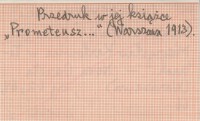 Przedruk w jej książce
„Prometeusz..." (Warszawa 1913).